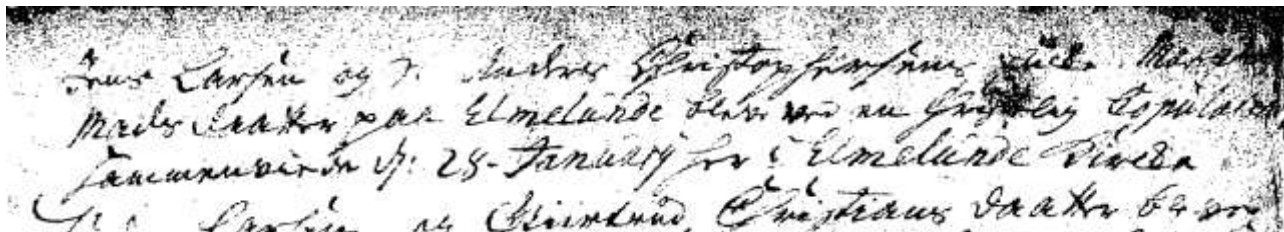 Jens Larsen og S. Anders Christophersens Encke Maren
Mads daatter paa Elmelunde blev ved en Christelig Copulation
sammenviede d: 28. January her i Elmelunde Kircke
Larsen og Giertrud Christians daatter blev